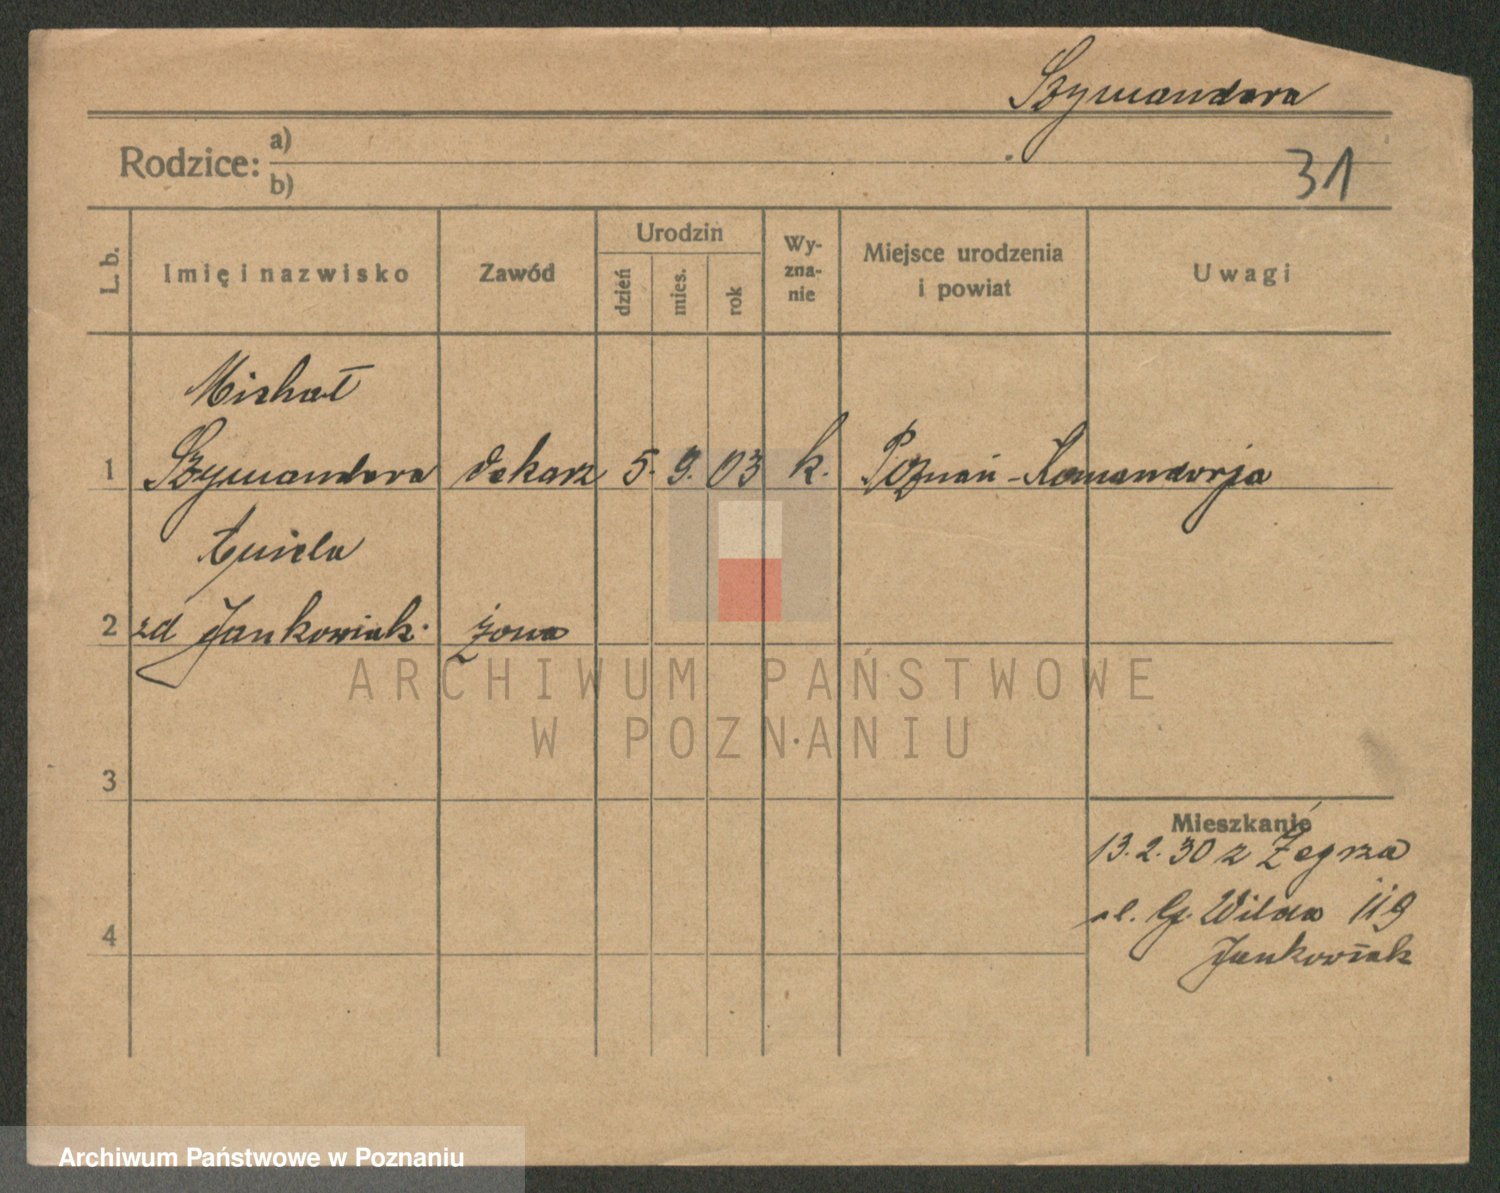 Szymandera
Rodzice: a)
b)
31
L. b.
Imię i nazwisko
Zawód
Urodzin
dzień
mies.
rok
Wy-
zna-
nie
Miejsce urodzenia
i powiat
Uwagi
Michał
1 Szymandera dekarz 5. 9. 03 k. Poznań - Komandorja
Aniela
2 zd Jankowiak. żona
3
4
Mieszkanie
13.2.30 z Żegrza
ul. G. Wilda 119
Jankowiak
ARCHIWUM PAŃSTWOWE
W POZNANIU
Archiwum Państwowe w Poznaniu